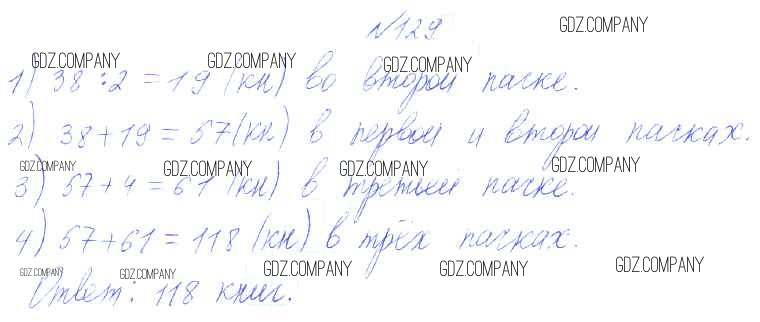 №129 GDZ.COMPANY
GDZ.COMPANY GDZ.COMPANY GDZ.COMPANY
1) 38 : 2 = 19 (кн) во второй пачке.
2) 38 + 19 = 57 (кн) в первой и второй пачках.
GDZ.COMPANY GDZ.COMPANY GDZ.COMPANY GDZ.COMPANY
3) 57 + 4 = 61 (кн) в третьей пачке.
4) 57 + 61 = 118 (кн) в трёх пачках.
GDZ.COMPANY GDZ.COMPANY GDZ.COMPANY GDZ.COMPANY GDZ.COMPANY
Ответ: 118 книг.